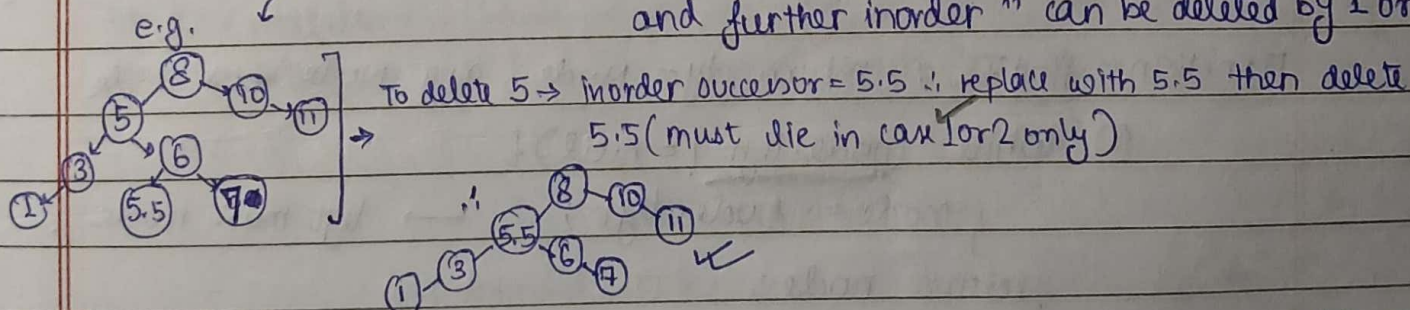 e.g.
and further inorder " can be deleted by 1 or
8
10
11
5
3
6
1
5.5
7
To delete 5 → inorder successor = 5.5 ∴ replace with 5.5 then delete
5.5 (must lie in case 1 or 2 only)
∴
8
10
11
5.5
3
6
1
7